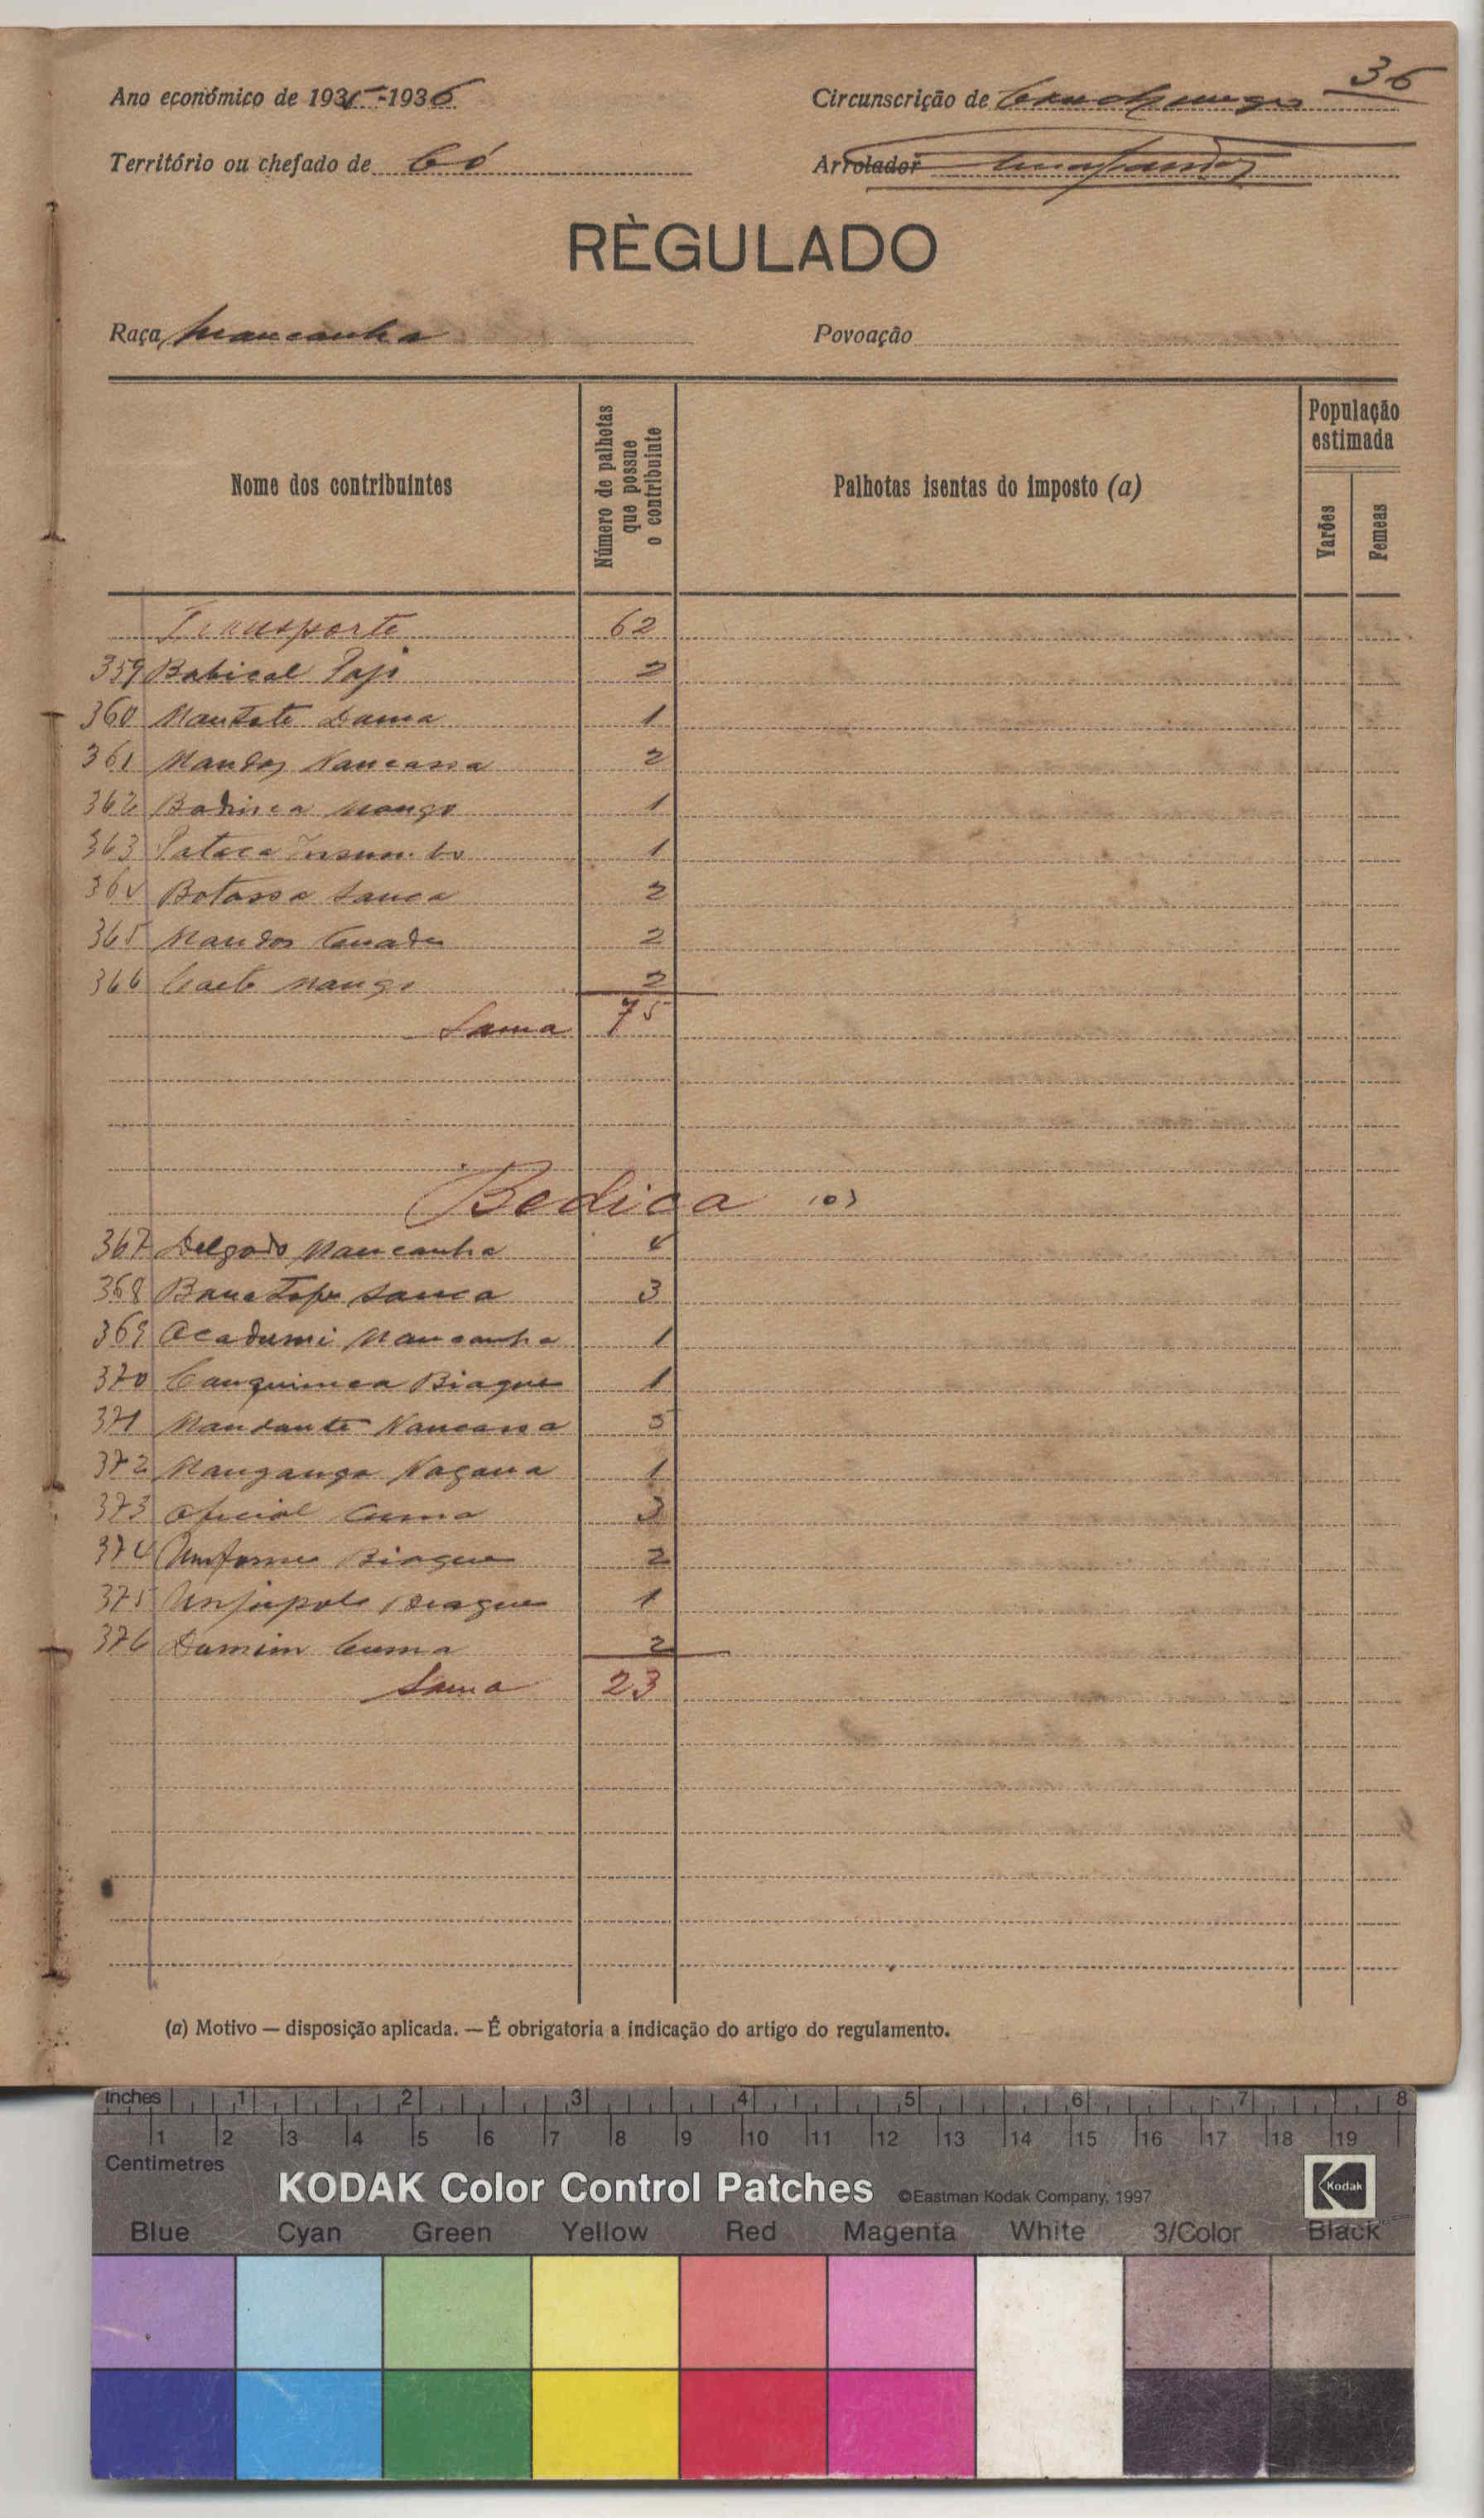 36
Ano económico de 1935-1936
Circunscrição de
Território ou chefado de Có
Arrolador
RÈGULADO
Raça Mancanha
Povoação
Nome dos contribuintes
Número de palhotas que possue o contribuinte
Palhotas isentas do imposto (a)
População estimada
Varões
Femeas
Transporte 62
359 Babical Papi 2
360 Mantate Dama 1
361 Mandos Nancassa 2
362 Badinca Nango 1
363 Pataca 1
364 Botassa Sanca 2
365 Mandos 2
366 Caeto Nango 2
Soma 75
Bedica
367 Delgado Mancanha 4
368 Sanca 3
369 Academi Mancanha 1
370 Canquimca Biague 1
371 Mandante Nancassa 5
372 Manganga Nagana 1
373 Oficial Cuma 3
374 Uniforme Biague 2
375 Biague 1
376 Damim Cuma 2
Soma 23
(a) Motivo — disposição aplicada. — É obrigatoria a indicação do artigo do regulamento.
Inches 1 2 3 4 5 6 7 8
1 2 3 4 5 6 7 8 9 10 11 12 13 14 15 16 17 18 19
Centimetres
KODAK Color Control Patches ©Eastman Kodak Company, 1997 Kodak
Blue Cyan Green Yellow Red Magenta White 3/Color Black